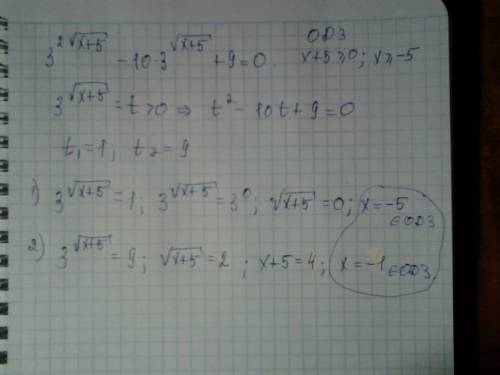 3^{2\sqrt{x+5}} - 10·3^{\sqrt{x+5}} + 9 = 0.
ОДЗ
x+5 ≥ 0; x ≥ -5
3^{\sqrt{x+5}} = t > 0 ⇒ t² - 10t + 9 = 0
t₁ = 1; t₂ = 9
1) 3^{\sqrt{x+5}} = 1; 3^{\sqrt{x+5}} = 3⁰; \sqrt{x+5} = 0; x = -5 ∈ ОДЗ
2) 3^{\sqrt{x+5}} = 9; \sqrt{x+5} = 2; x+5 = 4; x = -1 ∈ ОДЗ.